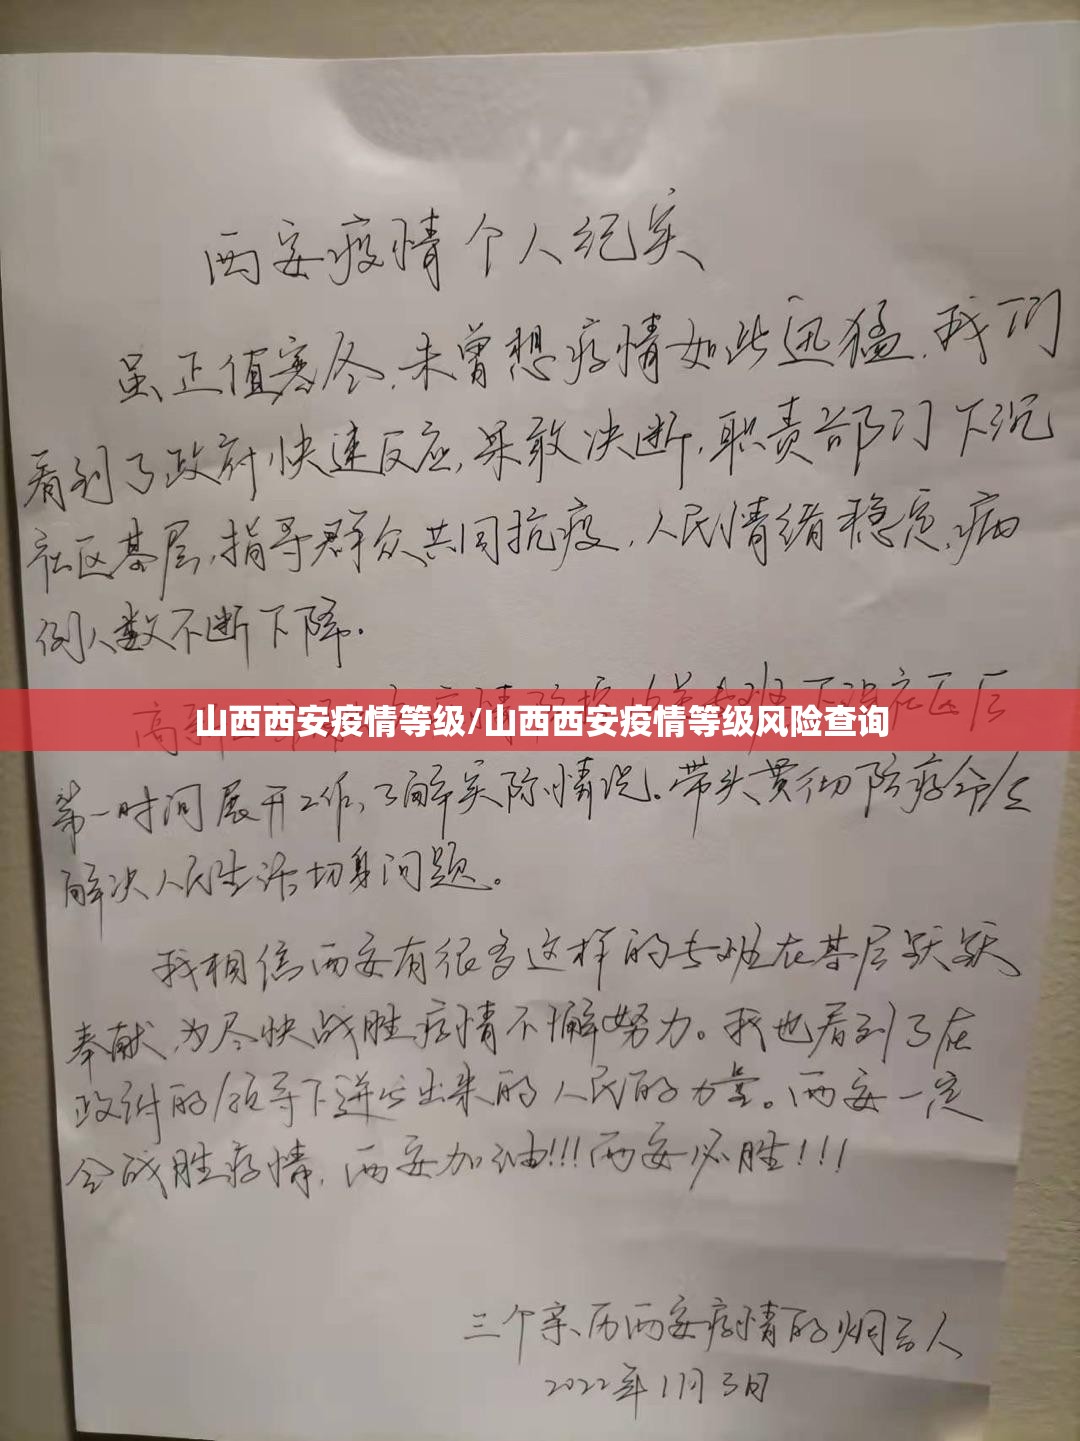 西安疫情个人纪实
虽正值寒冬,未曾想疫情如此迅猛,我们
看到了政府快速反应,果敢决断,职责部门下沉
社区基层,指导群众共同抗疫,人民情绪稳定,病
例人数不断下降.
高新
山西西安疫情等级/山西西安疫情等级风险查询
第一时间展开工作,了解实际情况。带头贯彻防疫命令
解决人民生活切身问题。
我相信西安有很多这样的专班在基层默默
奉献,为尽快战胜疫情不懈努力。我也看到了在
政府的领导下迸发出来的人民的力量。西安一定
会战胜疫情,西安加油!!!西安必胜!!!
三个亲历西安疫情的烟台人
2022年1月3日